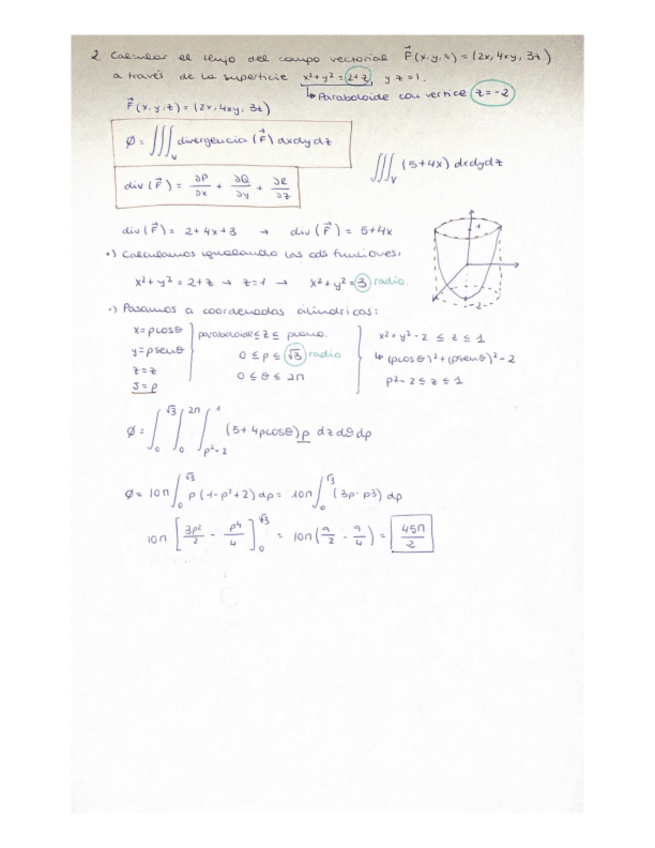 2 Calcular el flujo del campo vectorial F⃗(x,y,z) = (2x, 4xy, 3z)
a través de la superficie x²+y² = 2+z, y z=1.
↳ Paraboloide con vertice z=-2
F⃗(x,y,z) = (2x, 4xy, 3z)
Ø = ∭_V divergencia (F⃗) dxdydz
∭_V (5+4x) dxdydz
div (F⃗) = ∂P/∂x + ∂Q/∂y + ∂R/∂z
div (F⃗) = 2+4x+3 → div (F⃗) = 5+4x
•) Calculamos igualando las dos funciones:
x²+y² = 2+z → z=1 → x²+y² = 3 radio.
•) Pasamos a coordenadas cilíndricas:
x = ρcosθ
y = ρsenθ
z = z
J = ρ
paraboloide ≤ z ≤ plano.
0 ≤ ρ ≤ √3 radio
0 ≤ θ ≤ 2π
x²+y²-2 ≤ z ≤ 1
↳ (ρcosθ)²+(ρsenθ)²-2
ρ²-2 ≤ z ≤ 1
1
-2
Ø = ∫₀^√3 ∫₀^2π ∫_ρ²-2^1 (5+4ρcosθ) ρ dz dθ dρ
Ø = 10π ∫₀^√3 ρ (1-ρ²+2) dρ = 10π ∫₀^√3 (3ρ-ρ3) dρ
10π [3ρ²/2 - ρ⁴/4]₀^√3 = 10π (9/2 - 9/4) = 45π/2